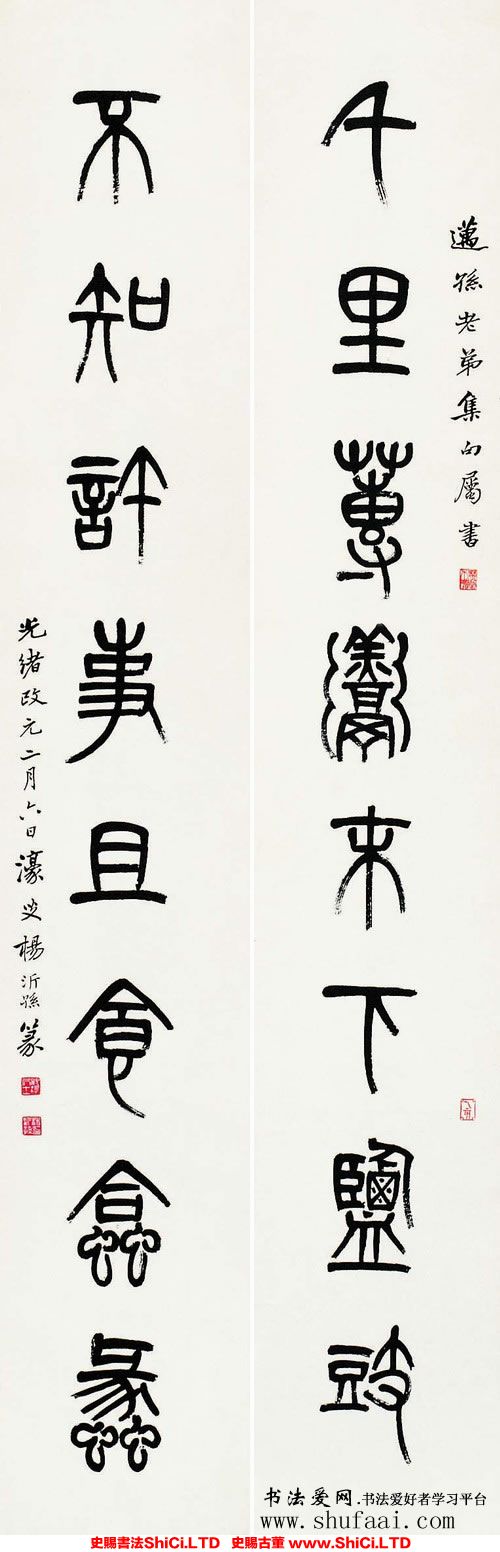 邁孫老弟集句屬書
千里蓴羹未下鹽豉
不知許事且食蛤蠡
光緒改元二月六日濠叟楊沂孫篆
书法爱网.书法爱好者学习平台
www.shufaai.com
史賜書法ShiCi.LTD 史賜古董 www.ShiCi.LTD